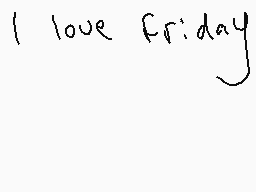 I love Friday